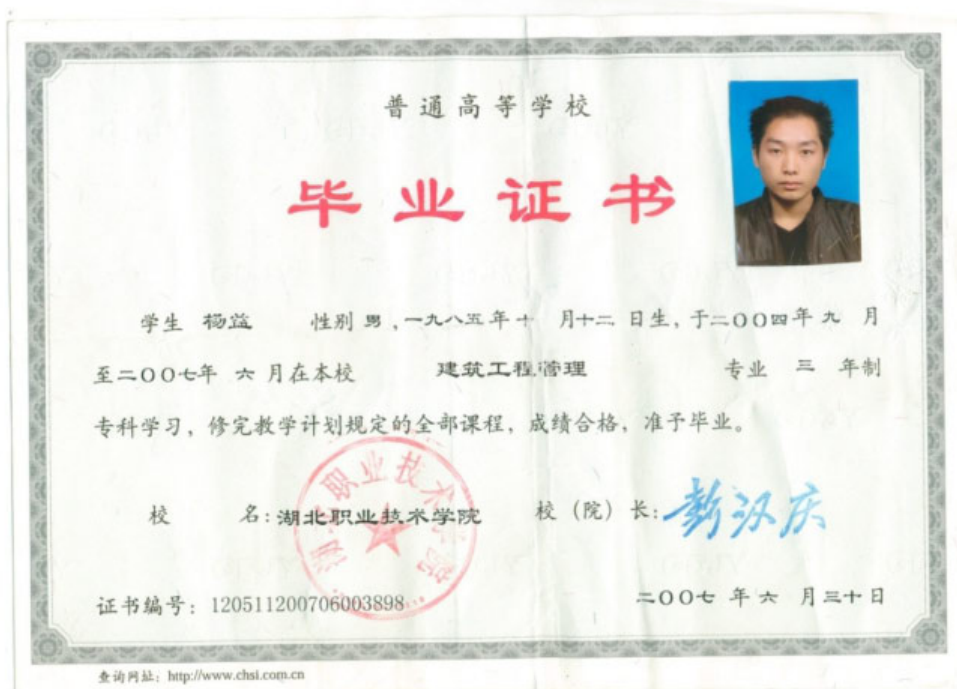 普通高等学校
毕业证书
学生 杨益 性别 男，一九八五年十 月十二 日生，于二〇〇四年 九 月
至二〇〇七年 六 月在本校 建筑工程管理 专业 三 年制
专科学习，修完教学计划规定的全部课程，成绩合格，准予毕业。
校 名：湖北职业技术学院 校（院）长：彭汉庆
湖北职业技术学院
证书编号：120511200706003898
二〇〇七 年 六 月三十日
查询网址：http://www.chsi.com.cn